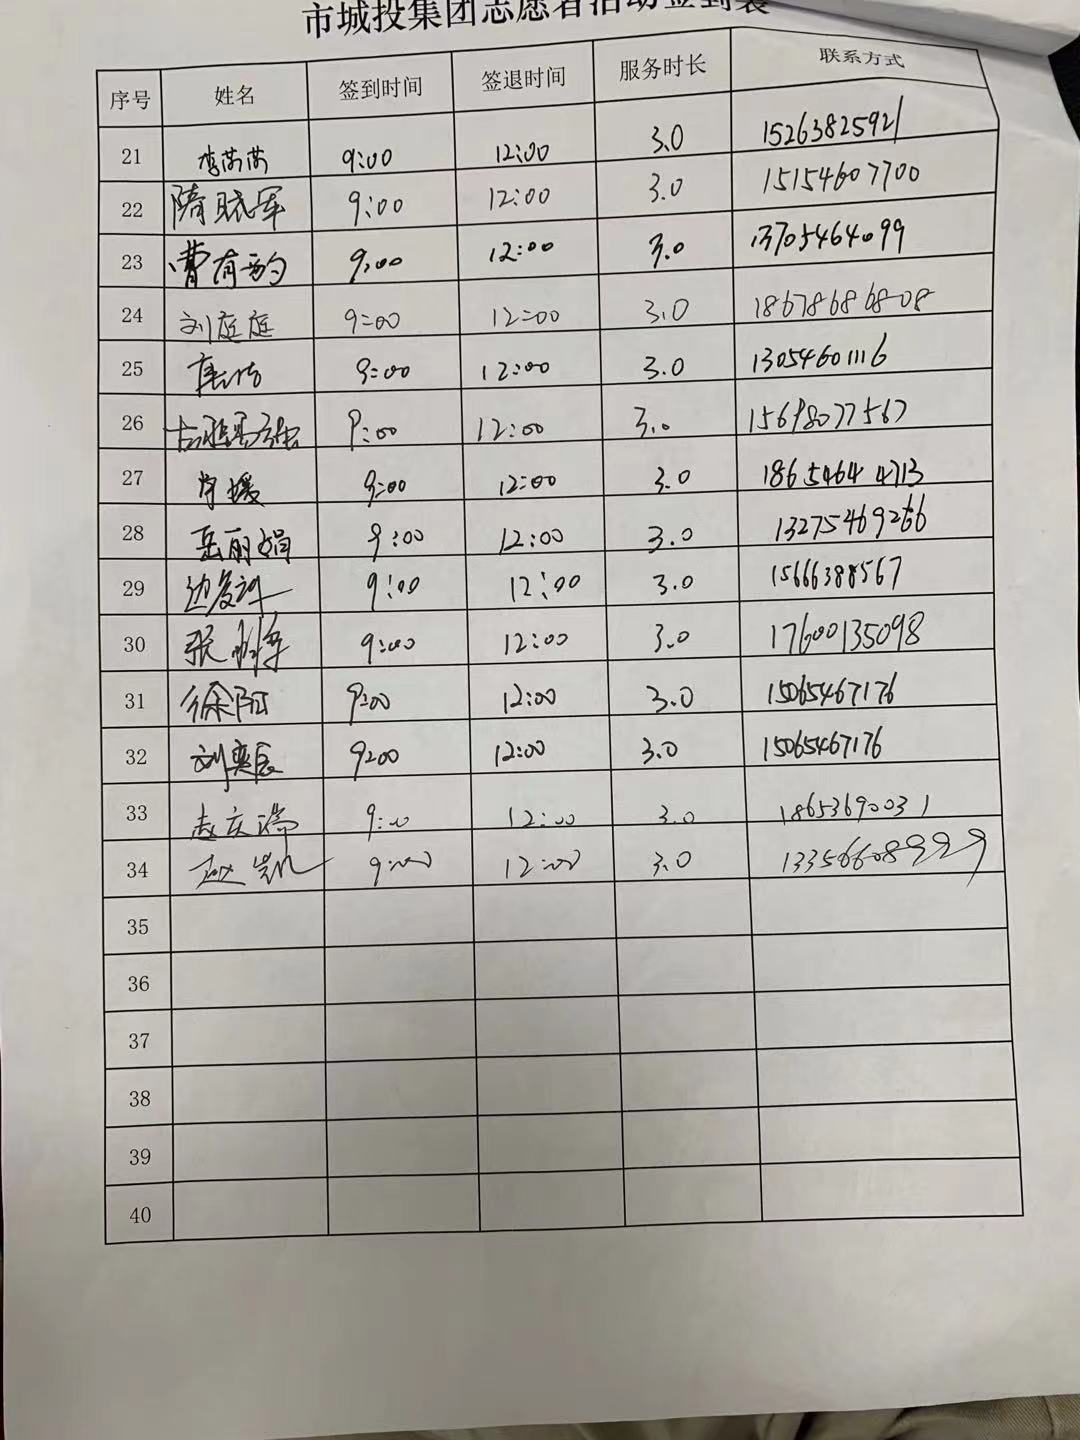 市城投集团志愿者活动签到表
序号 姓名 签到时间 签退时间 服务时长 联系方式
21 李苗苗 9:00 12:00 3.0 15263825921
22 隋晓军 9:00 12:00 3.0 15154607700
23 曹有 9:00 12:00 3.0 13705464099
24 刘庭庭 9:00 12:00 3.0 18678686808
25 9:00 12:00 3.0 13054601116
26 9:00 12:00 3.0 15698077567
27 肖媛 9:00 12:00 3.0 18654644713
28 岳丽娟 9:00 12:00 3.0 13275469266
29 边 9:00 12:00 3.0 15666388567
30 张 9:00 12:00 3.0 17600135098
31 徐阳 9:00 12:00 3.0 15065467176
32 刘奕辰 9:00 12:00 3.0 15065467176
33 赵庆瑞 9:00 12:00 3.0 18653690031
34 赵凯 9:00 12:00 3.0 13356608999
35
36
37
38
39
40